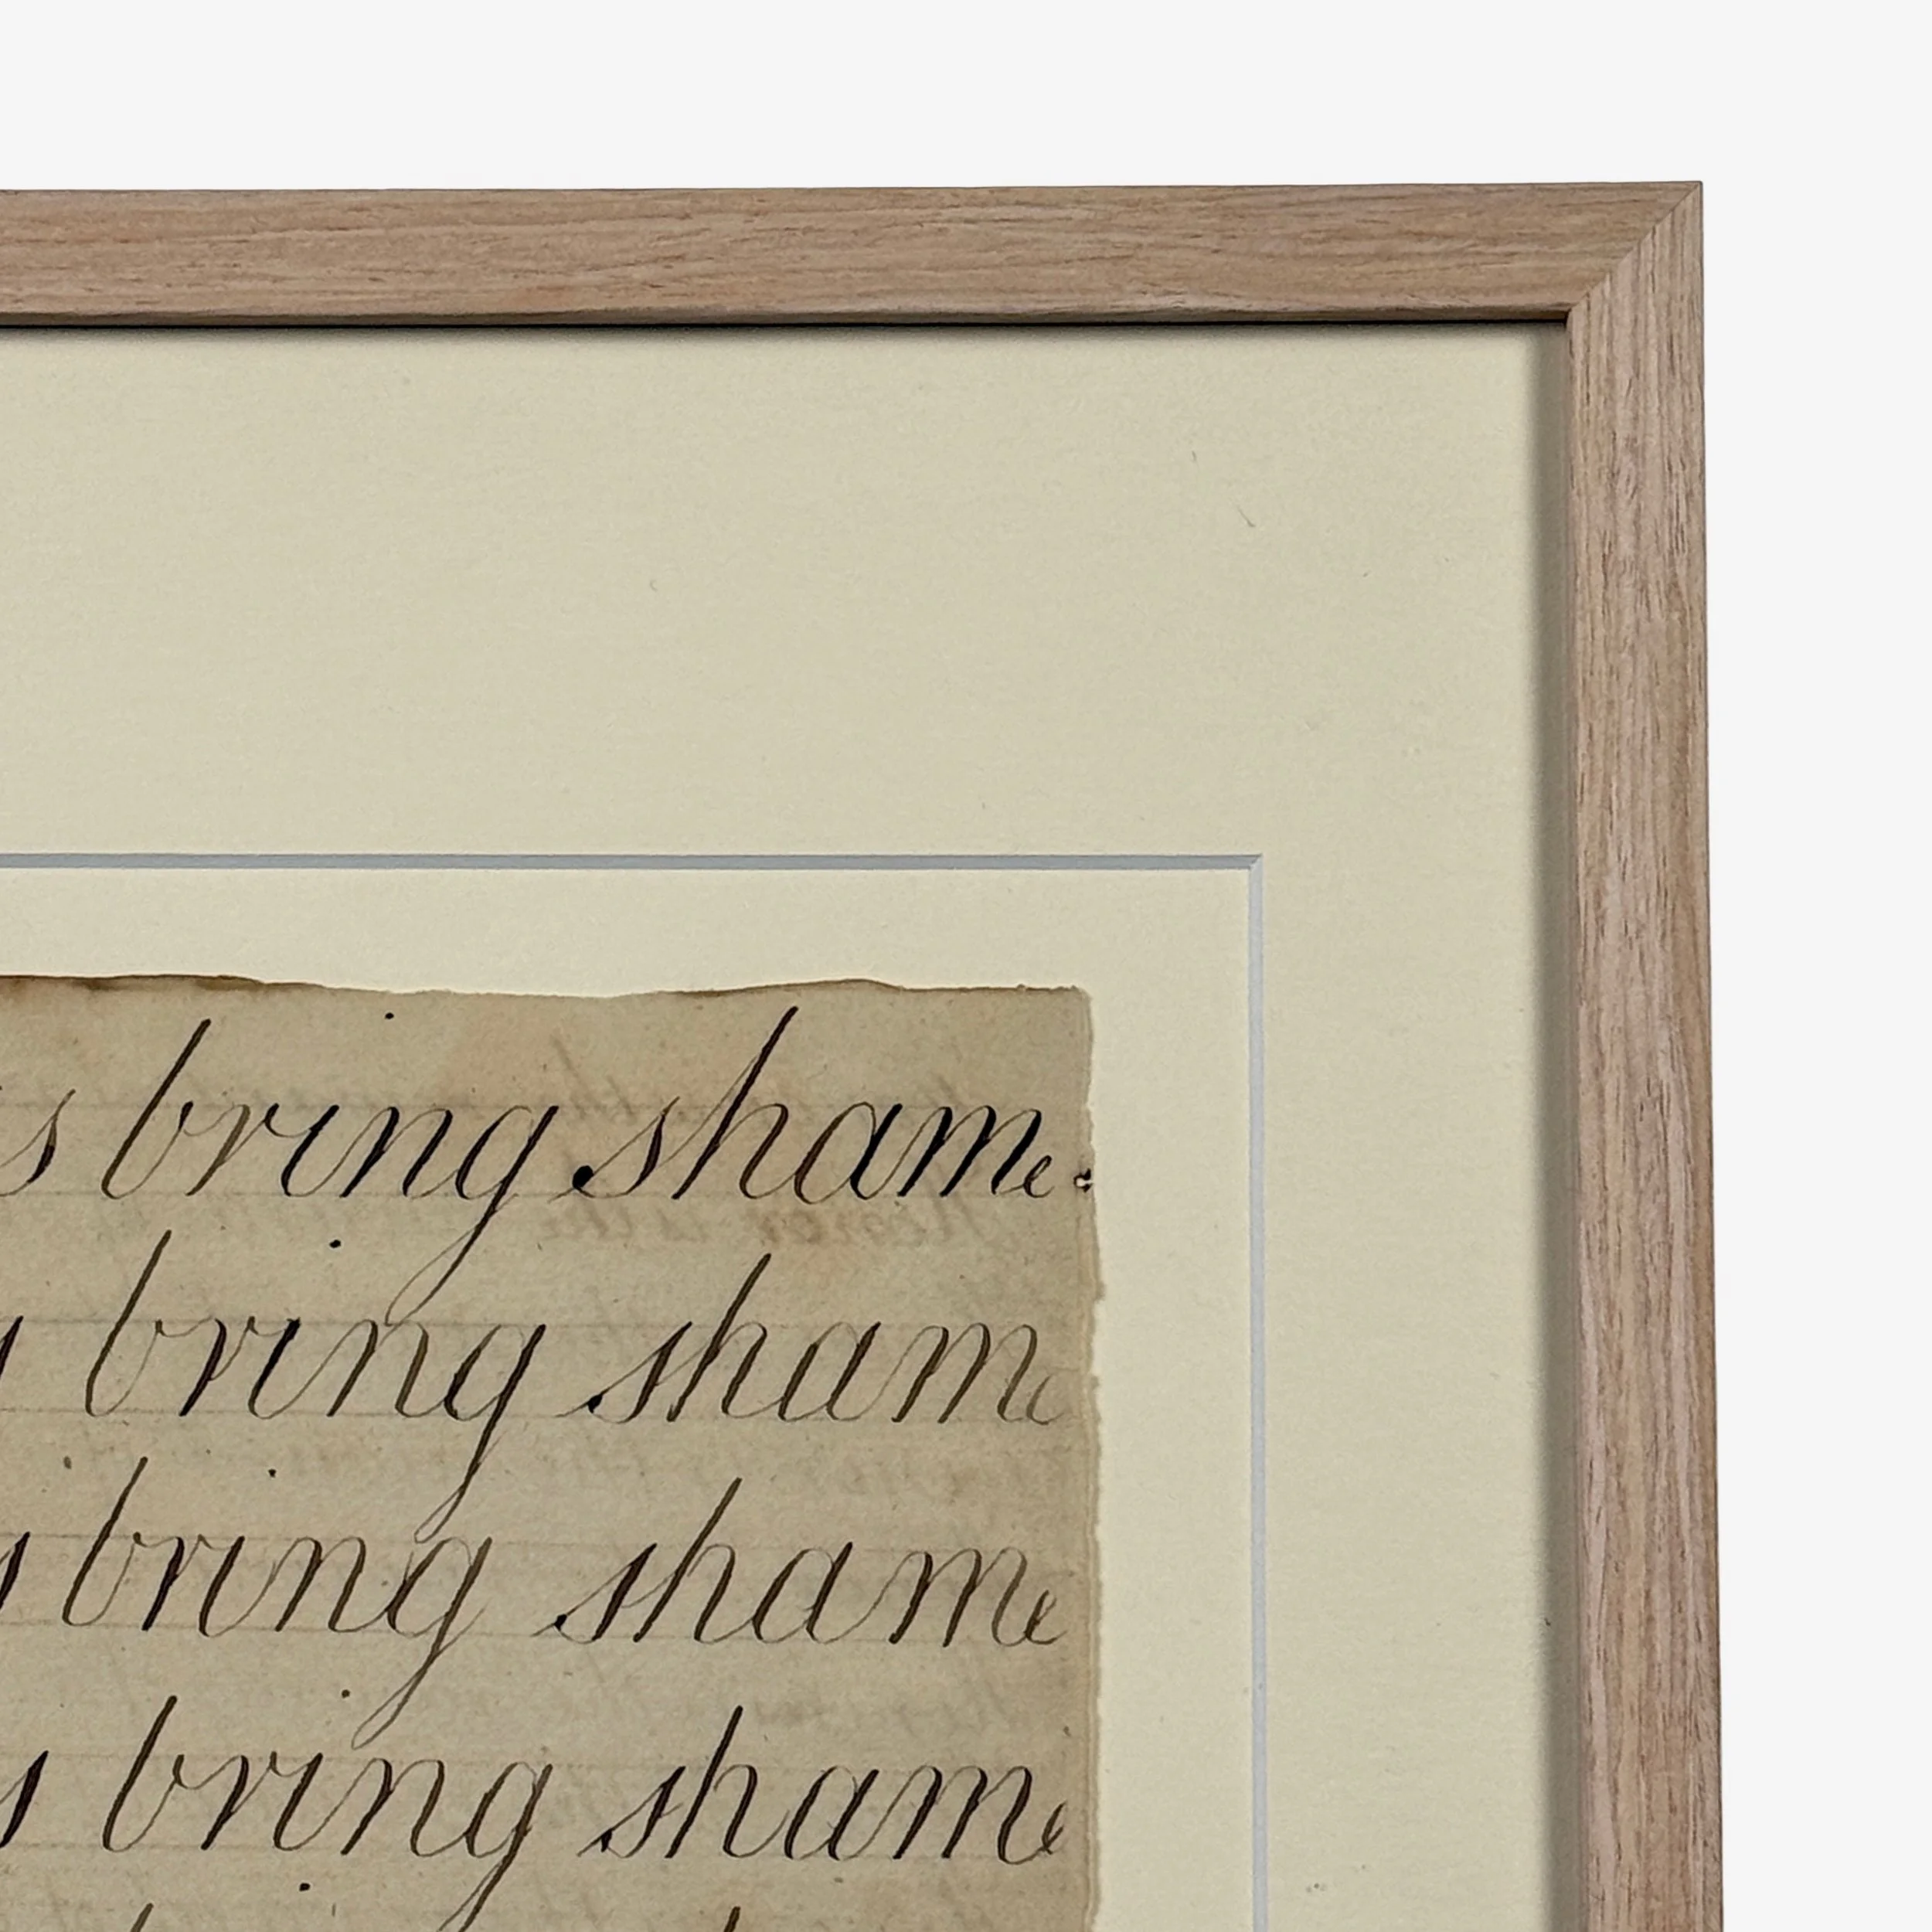 s bring shame.
s bring shame
s bring shame
s bring shame